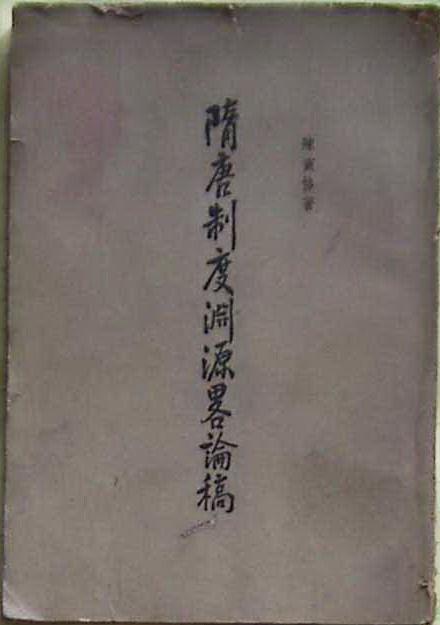 陳寅恪著
隋唐制度淵源畧論稿